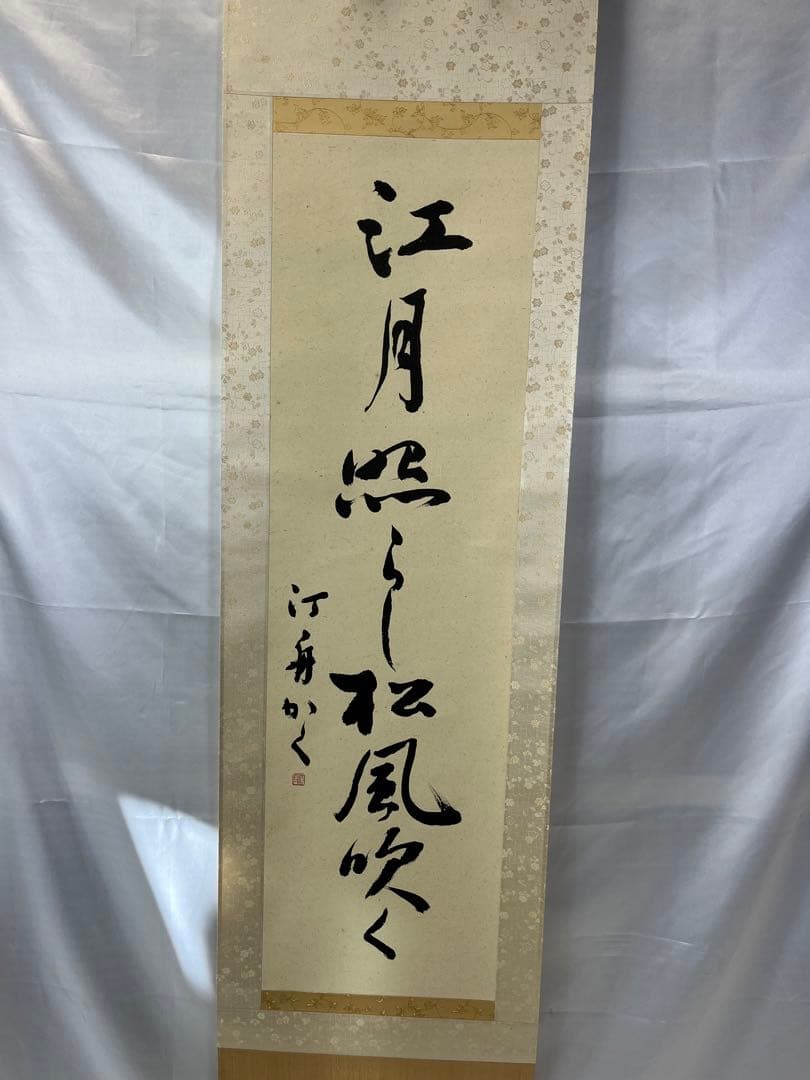 江月照らし松風吹く
汀舟かく